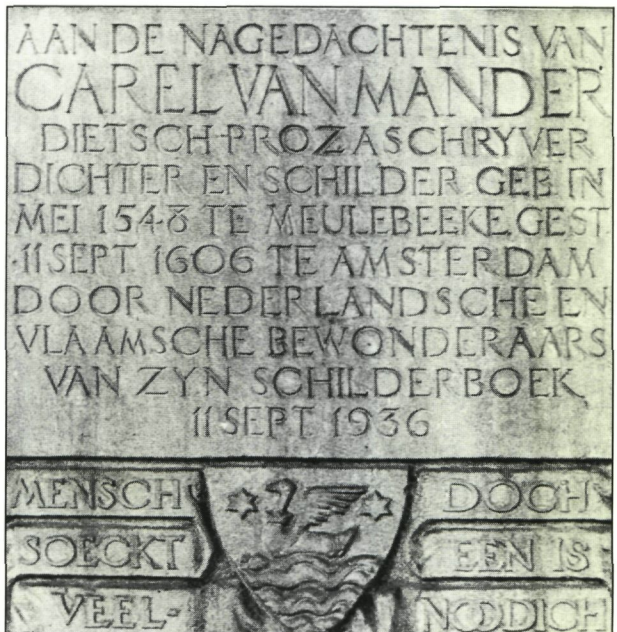 AAN DE NAGEDACHTENIS VAN
CAREL VAN MANDER
DIETSCH-PROZASCHRYVER
DICHTER EN SCHILDER GEB. IN
MEI 1548 TE MEULEBEEKE, GEST.
·11 SEPT. 1606 TE AMSTERDAM
DOOR NEDERLANDSCHE EN
VLAAMSCHE BEWONDERAARS
VAN ZYN SCHILDERBOEK
11 SEPT 1936
MENSCH DOCH
SOECKT EEN IS
VEEL- NOODICH